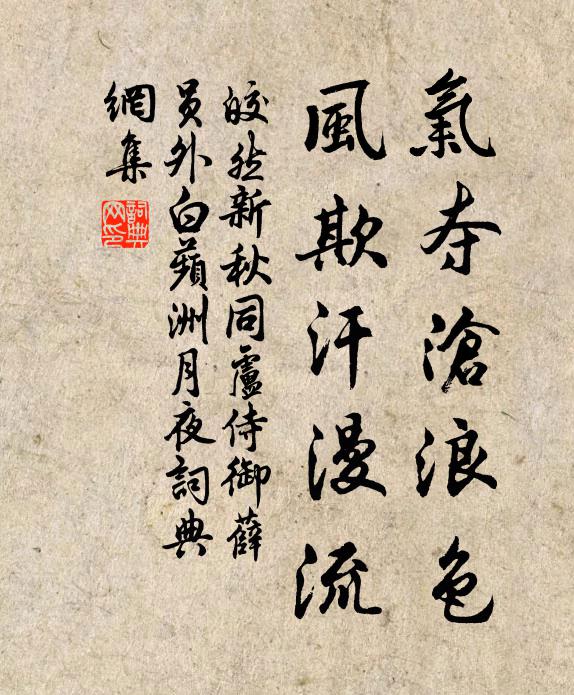 氣夺滄浪色
風欺汗漫流
皎然新秋同盧侍御薛
员外白蘋洲月夜詞典
網集
詞典网印